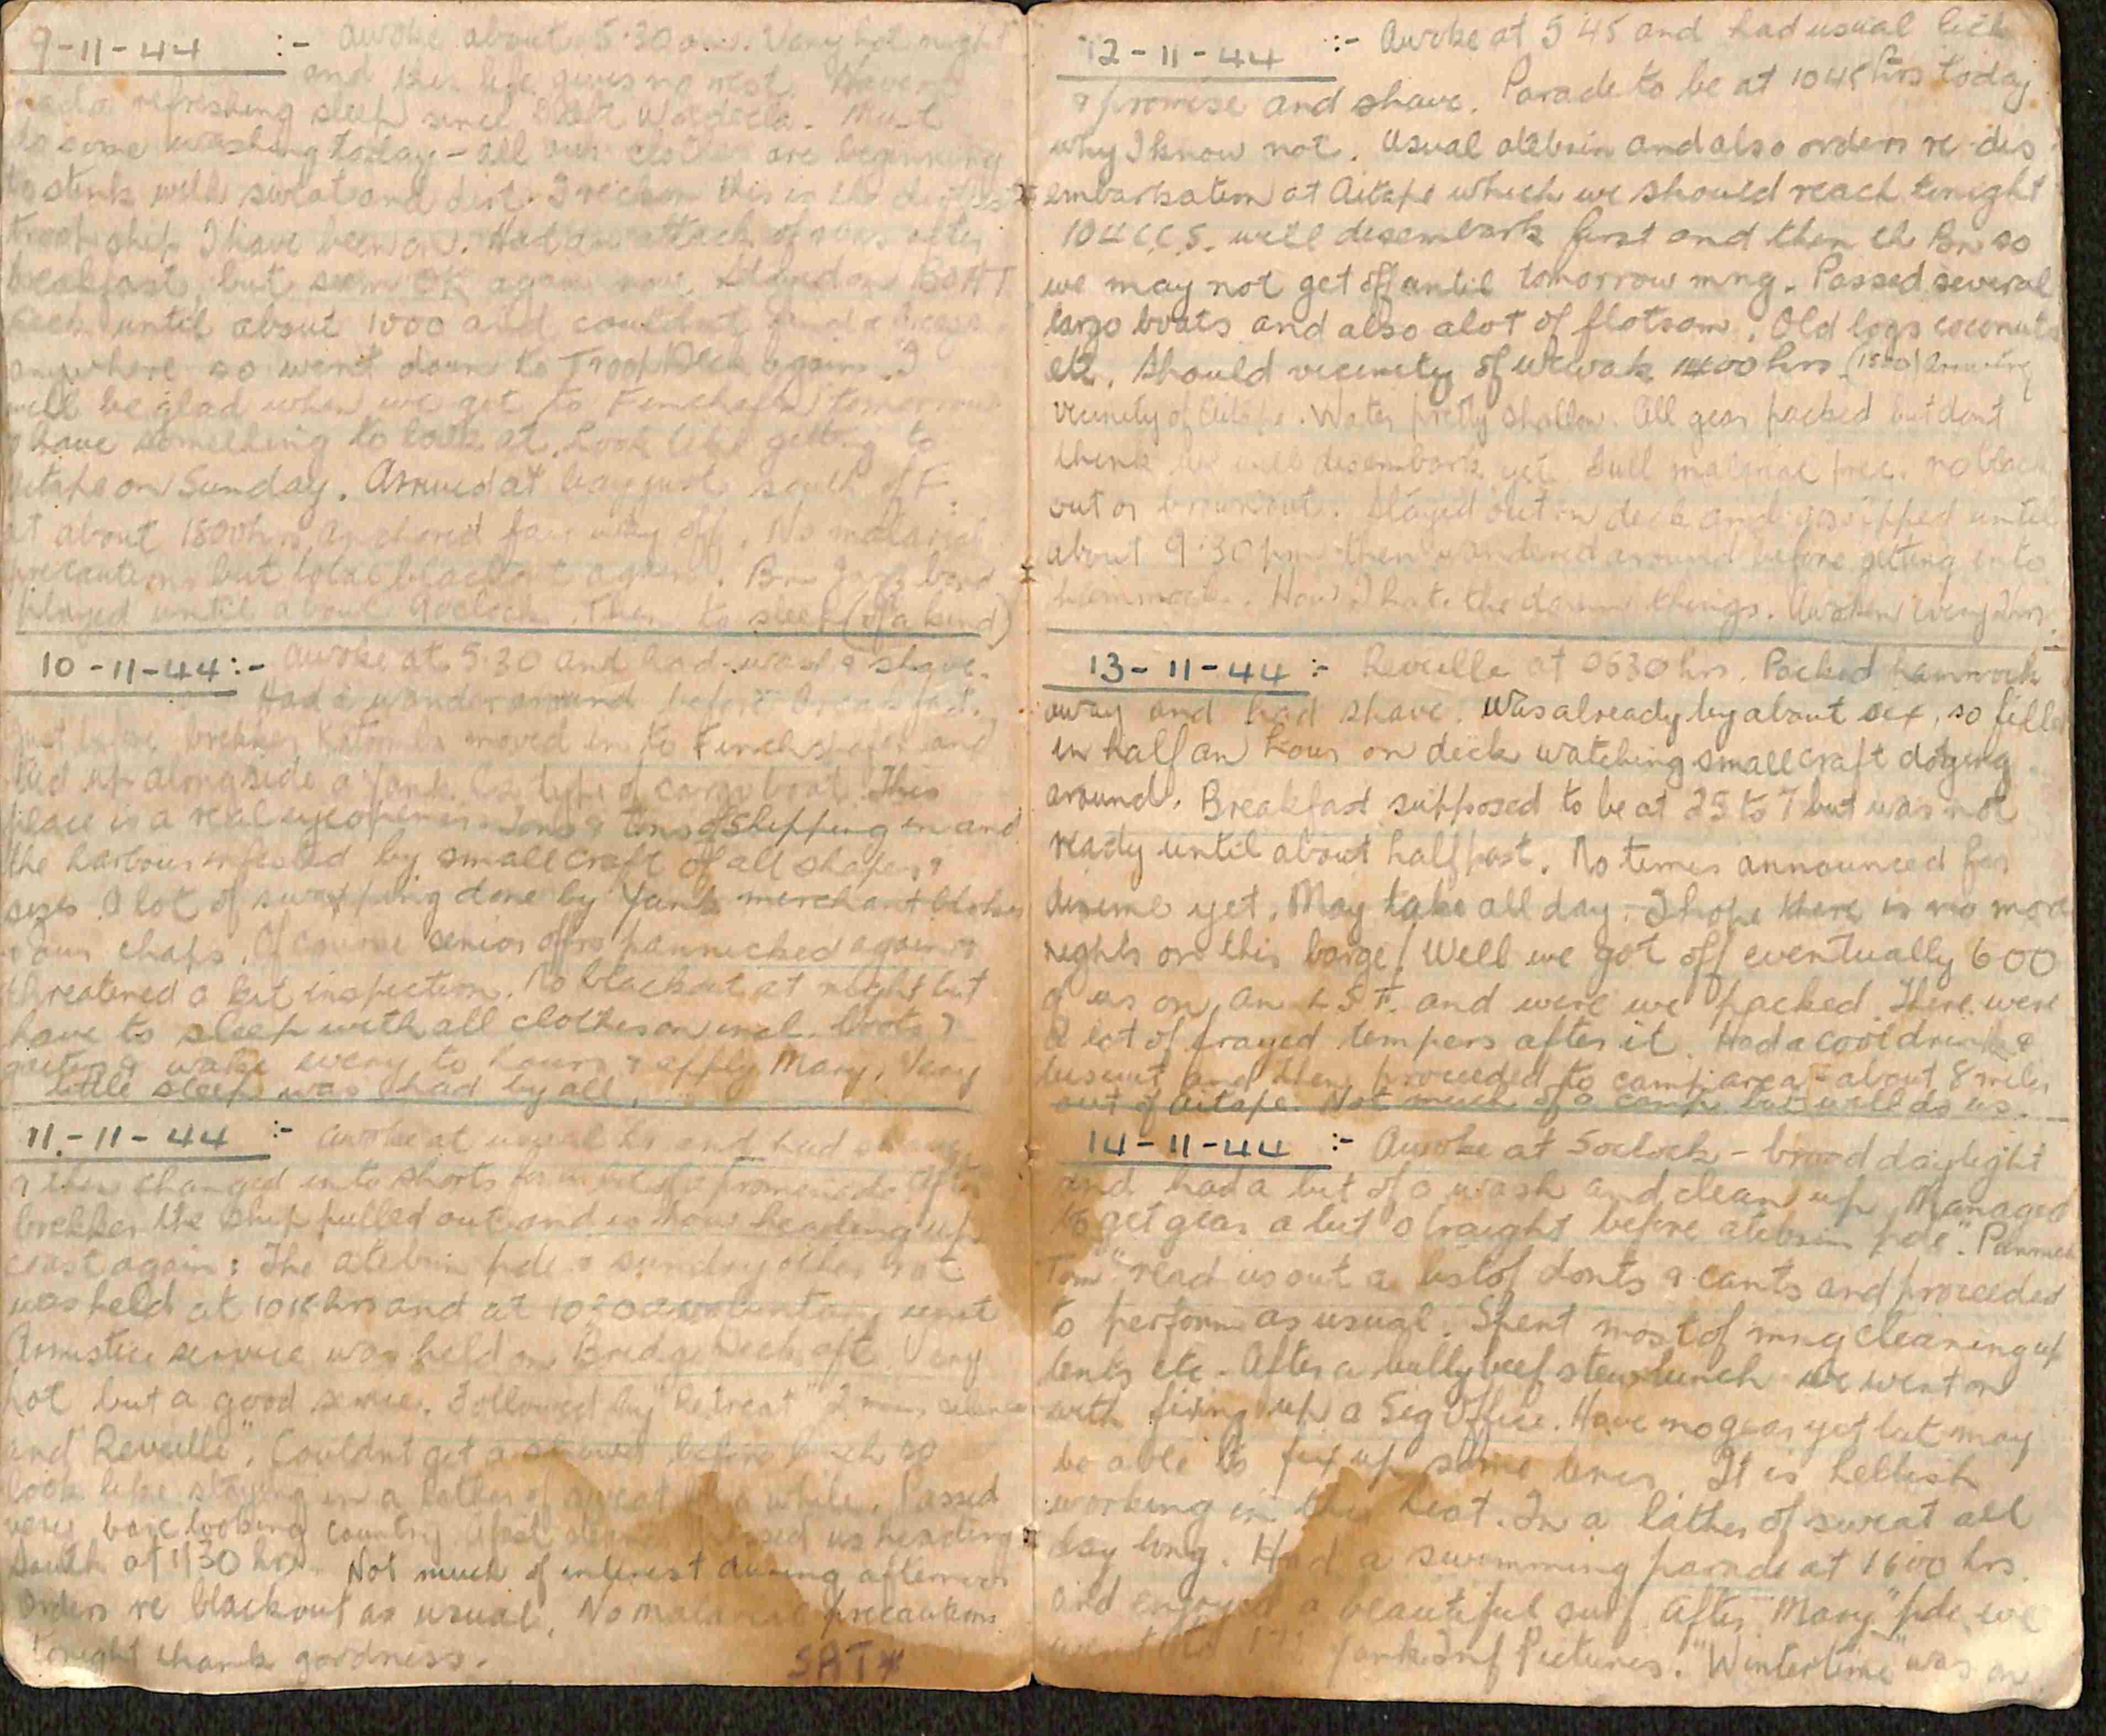 9-11-44 :- Awoke about 5.30 am. Very hot night
and this life gives no rest. Haven't
had a refreshing sleep since Must
do some washing today - all our clothes are beginning
to stink with sweat and dirt. I reckon this is the dirtiest
troop ship I have been on. Had an attack of after
breakfast, but seem OK again now. Stayed on BOAT
deck until about 1000 and couldn't find a
anywhere so went down to Troop Deck again. I
will be glad when we get to Finchafen tomorrow
& have something to look at. Look like getting to
Aitape on Sunday. Arrived at bay just south of F.
at about 1800 hrs anchored fair way off. No malarial
precautions but total blackout again. Bn Jazz band
played until about 9 oclock. Then to sleep (of a kind)
10-11-44 :- Awoke at 5.30 and had wash & shave.
Had a wander around before breakfast.
Just before brekker Katoomba moved in to Finchshafen and
tied up alongside a Yank type of cargo boat. This
place is a real eyeopener. Tons & tons of shipping in and
the harbour infested by small craft of all shapes &
sizes. A lot of swapping done by Yank merchant blokes
& our chaps. Of course senior offrs pannicked again &
threatened a kit inspection. No blackout at night but
have to sleep with all clothes on incl. boots &
gaiters & wake every to hours & apply Mary. Very
little sleep was had by all.
11-11-44 :- Awoke at usual hr and had shave
& then changed into shorts for a bit of a promenade. After
brekker the ship pulled out and is now heading up
coast again: The atebrin pde & sunday other rot
was held at 1015 hrs and at 1030 a voluntary unit
Armistice service was held on Bridge Deck aft. Very
hot but a good service. Followed by "Retreat" 2 mins silence
and "Reveille". Couldnt get a shower before lunch so
look like staying in a lather of sweat for a while. Passed
very bare looking country. passed us heading
South at 1130 hrs. Not much of interest during afternoon
Orders re blackout as usual. No malarial precautions
tonight thank goodness.
SAT*
12-11-44 :- Awoke at 5 45 and had usual lick
& promise and shave. Parade to be at 1045 hrs today
why I know not. Usual atebrin and also orders re dis-
embarkation at Aitape which we should reach tonight
104 CCS. will disembark first and then the Bn so
we may not get off until tomorrow mng. Passed several
large boats and also alot of flotsam. Old logs coconuts
etc. Should vicinity of Wewak 1400 hrs. (1800) Arriving
vicinity of Aitape. Water pretty shallow. All gear packed but dont
think we will disembark yet. Still malarial free. no black
out or brownout. Stayed out on deck and gossipped until
about 9.30 pm then wandered around before getting into
hammock. How I hate the damn things. Awoken every 2 hrs.
13-11-44 :- Reveille at 0630 hrs. Packed hammock
away and had shave. Was already by about six, so filled
in half an hour on deck watching small craft dodging
around. Breakfast supposed to be at 25 to 7 but was not
ready until about half past. No times announced for
disemb yet. May take all day. I hope there is no more
nights on this barge! Well we got off eventually 600
of us on an L.S.T. and were we packed. There were
a lot of frayed tempers after it. Had a cool drink &
biscuit and then proceeded to camp area - about 8 miles
out of Aitape. Not much of a camp but will do us.
14-11-44 :- Awoke at 5oclock - broad daylight
and had a bit of a wash and clean up. Managed
to get gear a bit straight before atebrin pde. "Pannick
Tom" read us out a list of donts & cants and proceeded
to perform as usual. Spent most of mng cleaning up
tents etc. After a bullybeef stew lunch we went on
with fixing up a Sig Office. Have no gear yet but may
be able to fix up some lines. It is hellish
working in this heat. In a lather of sweat all
day long. Had a swimming parade at 1600 hrs.
and enjoyed a beautiful surf. After "Mary" pde we
went to Yank Inf Pictures. "Wintertime" was on